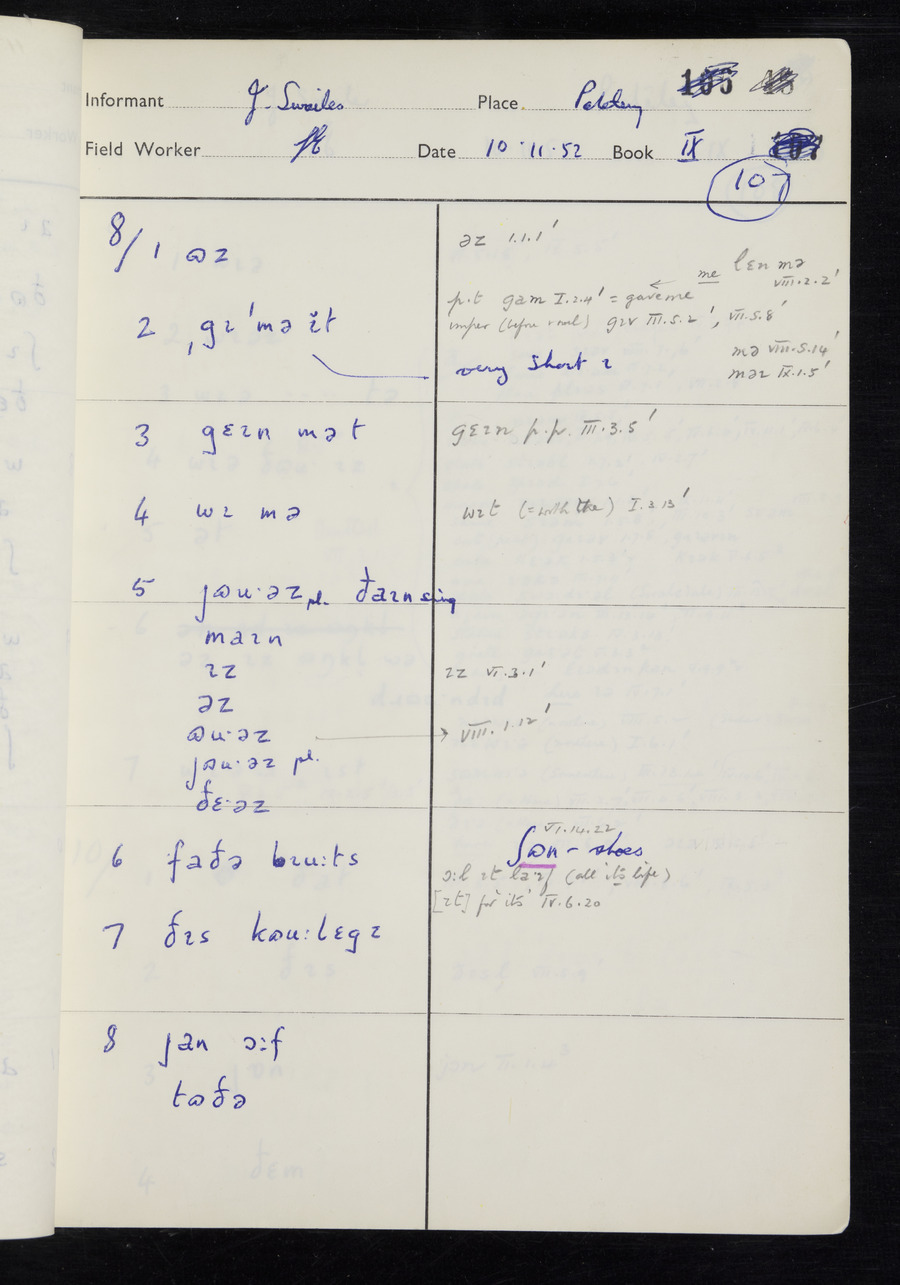 Informant J. Swailes Place
Field Worker Date 10·11·52 Book IX
107
8/1 ɷz əz 1.1.1'
me lɛn mə VIII.2.2'
p.t gam I.2.4' = gave me
2 ˌgɪ'mə ɪ̆t imper (before vowel) gɪv III.5.2', VII.5.8'
very short ɪ mə VIII.5.14'
məɪ IX.1.5'
3 gɛɪn mə t gɛɪn p.p. III.3.5'
4 wɪ mə wɪt (= with the) I.3.13'
5 jɷu·əz pl. ðaɪn sing
maɪn
ɪz ɪz VI.3.1'
əz
ɷu·əz → VIII.1.12'
jɷu·əz pl.
ðɛ·əz
VI.14.22
6 faðə bɪu:ts ʃɷn – shoes
ɔ:l ɪt laɪf (all its life)
[ɪt] for its IV.6.20
7 ðɪs kɷu:lɛgɪ
8 jan ɔ:f
tɷðə